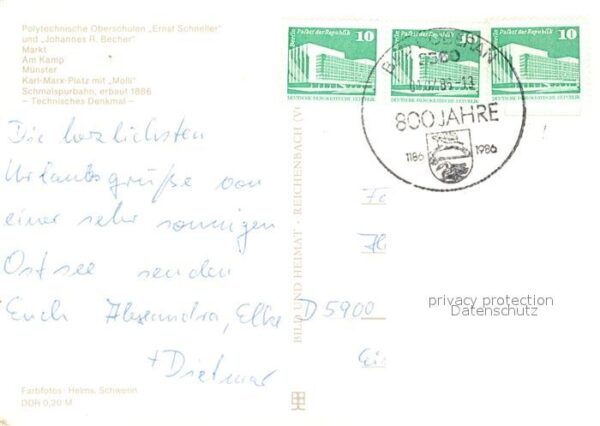 Polytechnische Oberschulen „Ernst Schneller"
und „Johannes R. Becher"
Markt
Am Kamp
Münster
Karl-Marx-Platz mit „Molli"
Schmalspurbahn, erbaut 1886
- Technisches Denkmal -
Die herzlichsten
Urlaubsgrüße von
einer sehr sonnigen
Ostsee senden
Euch Alexandra, Elke
+ Dietmar
Farbfotos: Helms, Schwerin
DDR 0,20 M
BILD UND HEIMAT · REICHENBACH
Berlin Palast der Republik 10
DEUTSCHE DEMOKRATISCHE REPUBLIK
Berlin Palast der Republik 10
DEUTSCHE DEMOKRATISCHE REPUBLIK
Berlin Palast der Republik 10
DEUTSCHE DEMOKRATISCHE REPUBLIK
BAD DOBERAN
2560
800 JAHRE
1186 1986
D 5900
privacy protection
Datenschutz